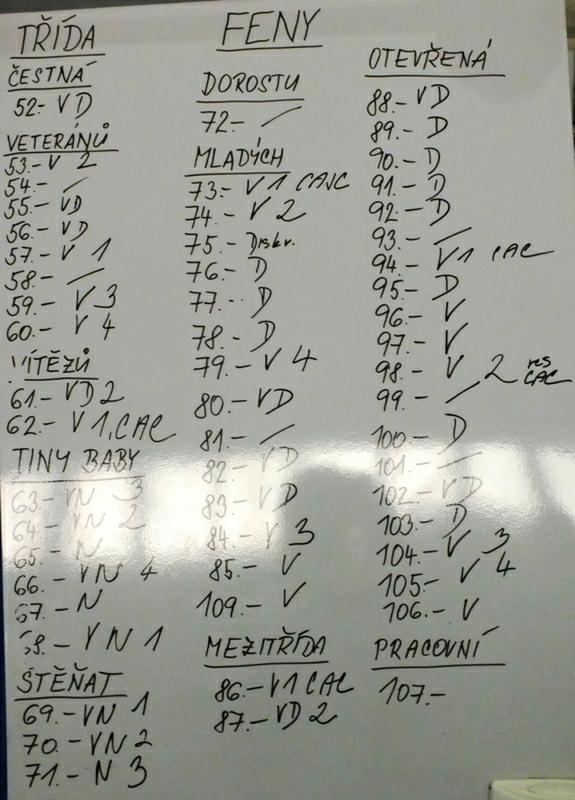 TŘÍDA
FENY
ČESTNÁ
52.- VD
VETERÁNŮ
53.- V 2
54.- /
55.- VD
56.- VD
57.- V 1
58.- /
59.- V 3
60.- V 4
VÍTĚZŮ
61.- VD 2
62.- V 1, CAC
TINY BABY
63.- VN 3
64.- VN 2
65.- N
66.- VN 4
67.- N
68.- VN 1
ŠTĚŇAT
69.- VN 1
70.- VN 2
71.- N 3
DOROSTU
72.- /
MLADÝCH
73.- V 1 CAJC
74.- V 2
75.- Diskv.
76.- D
77.- D
78.- D
79.- V 4
80.- VD
81.- /
82.- VD
83.- VD
84.- V 3
85.- V
109.- V
MEZITŘÍDA
86.- V1 CAC
87.- VD 2
OTEVŘENÁ
88.- VD
89.- D
90.- D
91.- D
92.- D
93.- /
94.- V1 CAC
95.- D
96.- V
97.- V
98.- V 2 res CAC
99.- /
100.- D
101.- /
102.- VD
103.- D
104.- V 3
105.- V 4
106.- V
PRACOVNÍ
107.-